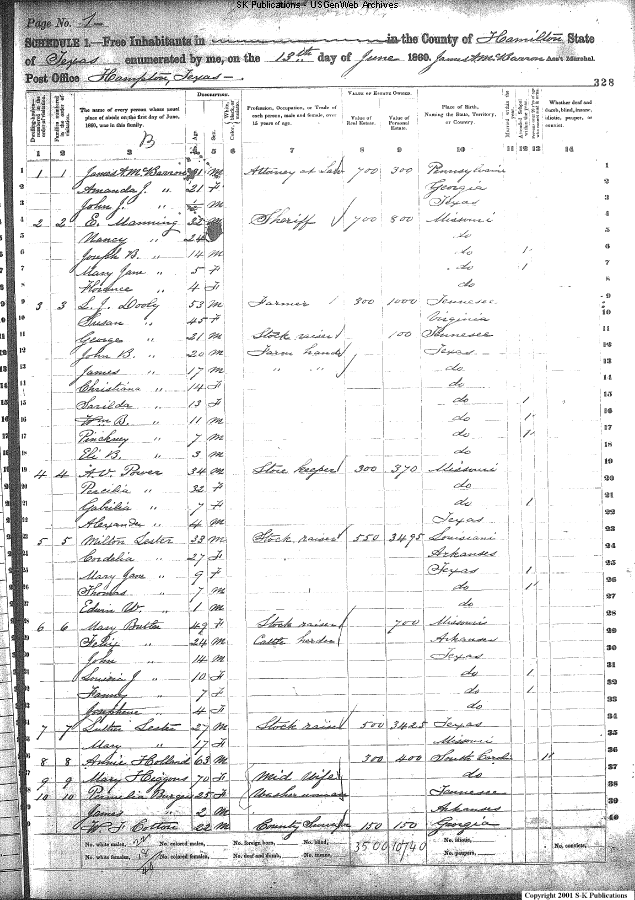 SK Publications - USGenWeb Archives
Page No. 1
SCHEDULE 1.—Free Inhabitants in in the County of Hamilton State
of Texas enumerated by me, on the 13th day of June 1860. James A M Barron Ass't Marshal.
Post Office Hampton, Texas
328
The name of every person whose usual place of abode on the first day of June, 1860, was in this family.
Description.
Age
Sex
Profession, Occupation, or Trade of each person, male and female, over 15 years of age.
Value of Estate Owned.
Value of Real Estate.
Value of Personal Estate.
Place of Birth, Naming the State, Territory, or Country.
Whether deaf and dumb, blind, insane, idiotic, pauper, or convict.
1 2 3 4 5 6 7 8 9 10 11 12 13 14
1 1 1 James A M Barron M Attorney at Law 700 300 Pennsylvania
2 Amanda J. " 21 F Georgia
3 John J. " M Texas
4 2 2 E. Manning 32 M Sheriff 700 800 Missouri
5 Nancy " 24 do
6 Joseph B. " 14 M do 1
7 Mary Jane " 5 F do 1
8 Florence " 4 F do
9 3 3 L. J. Dooly 53 M Farmer 800 1000 Tennessee
10 Susan " 45 F Virginia
11 George " 21 M Stock raiser 100 Tennessee
12 John B. " 20 M Farm hand Texas
13 James " 17 M " " do
14 Christiana " 14 F do
15 13 F do 1
16 Wm B. " 11 M do 1
17 Pinckney " 7 M do 1
18 Eli B. " 3 M do
19 4 4 Power 34 M Store keeper 300 370 Missouri
20 " 32 F do
21 " 7 F do 1
22 Alexander " 4 M Texas
23 5 5 Milton Lester 33 M Stock raiser 550 3495 Louisiana
24 Cordelia " 27 F Arkansas
25 Mary Jane " 9 F Texas 1
26 Thomas " 7 M do 1
27 Edwin W. " 1 M do
28 6 6 Mary 49 F Stock raiser 700 Missouri
29 Felix " 24 M Cattle herder Arkansas
30 John " 14 M Texas
31 J " 10 F do 1
32 Fanny " 7 F do 1
33 Josephene " 4 F do
34 7 7 Luther Lester 27 M Stock raiser 500 3425 Texas
35 Mary " 17 F Missouri
36 8 8 Holland 63 M 300 400 South Carolina 1
37 9 9 Mary Higgons 70 F Mid Wife do
38 10 10 Permelia 25 F Washerwoman Tennessee
39 James " 2 M Arkansas
40 W. F. Cotton 22 M County Surveyor 150 150 Georgia
No. white males, No. colored males, No. foreign born, No. blind, 3500 10740 No. idiotic, No. convicts,
No. white females, No. colored females, No. deaf and dumb, No. insane, No. paupers,
Copyright 2001 S-K Publications